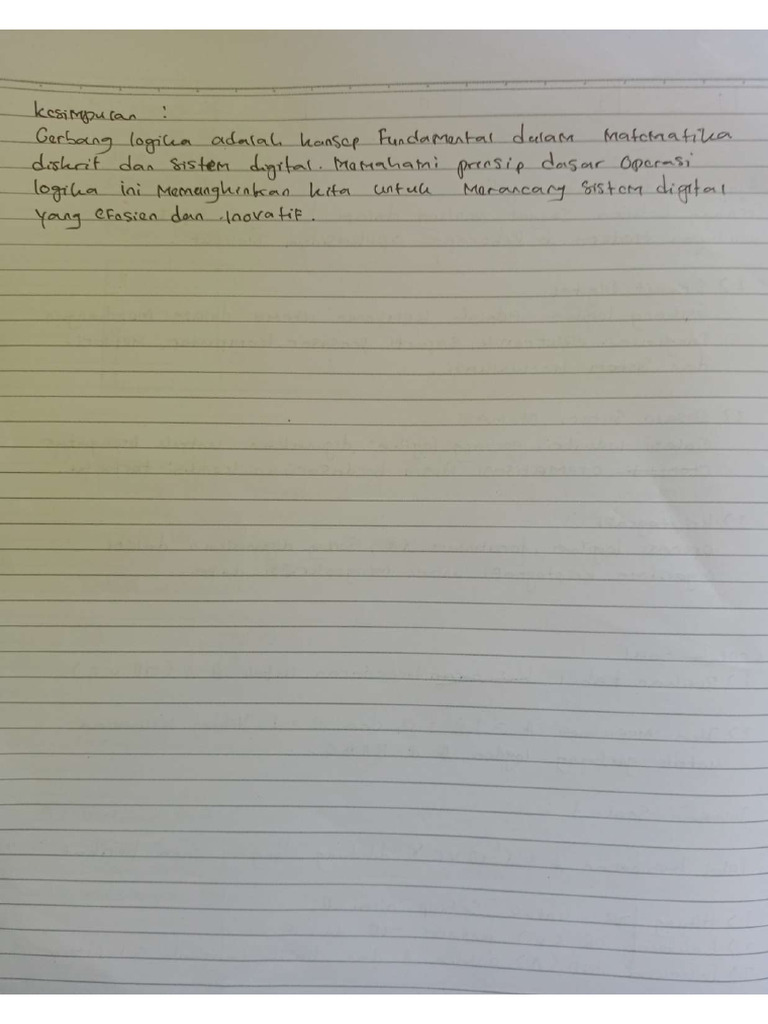 Kesimpulan :
Gerbang logika adalah konsep fundamental dalam Matematika
diskrit dan sistem digital. Memahami prinsip dasar Operasi
logika ini Memungkinkan kita untuk Merancang sistem digital
yang efesien dan inovatif.